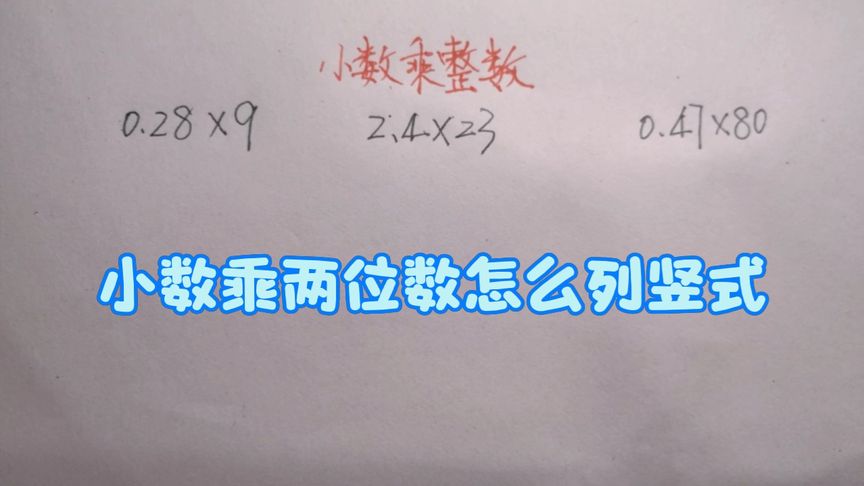 小数乘整数
0.28×9 2.4×23 0.47×80
小数乘两位数怎么列竖式